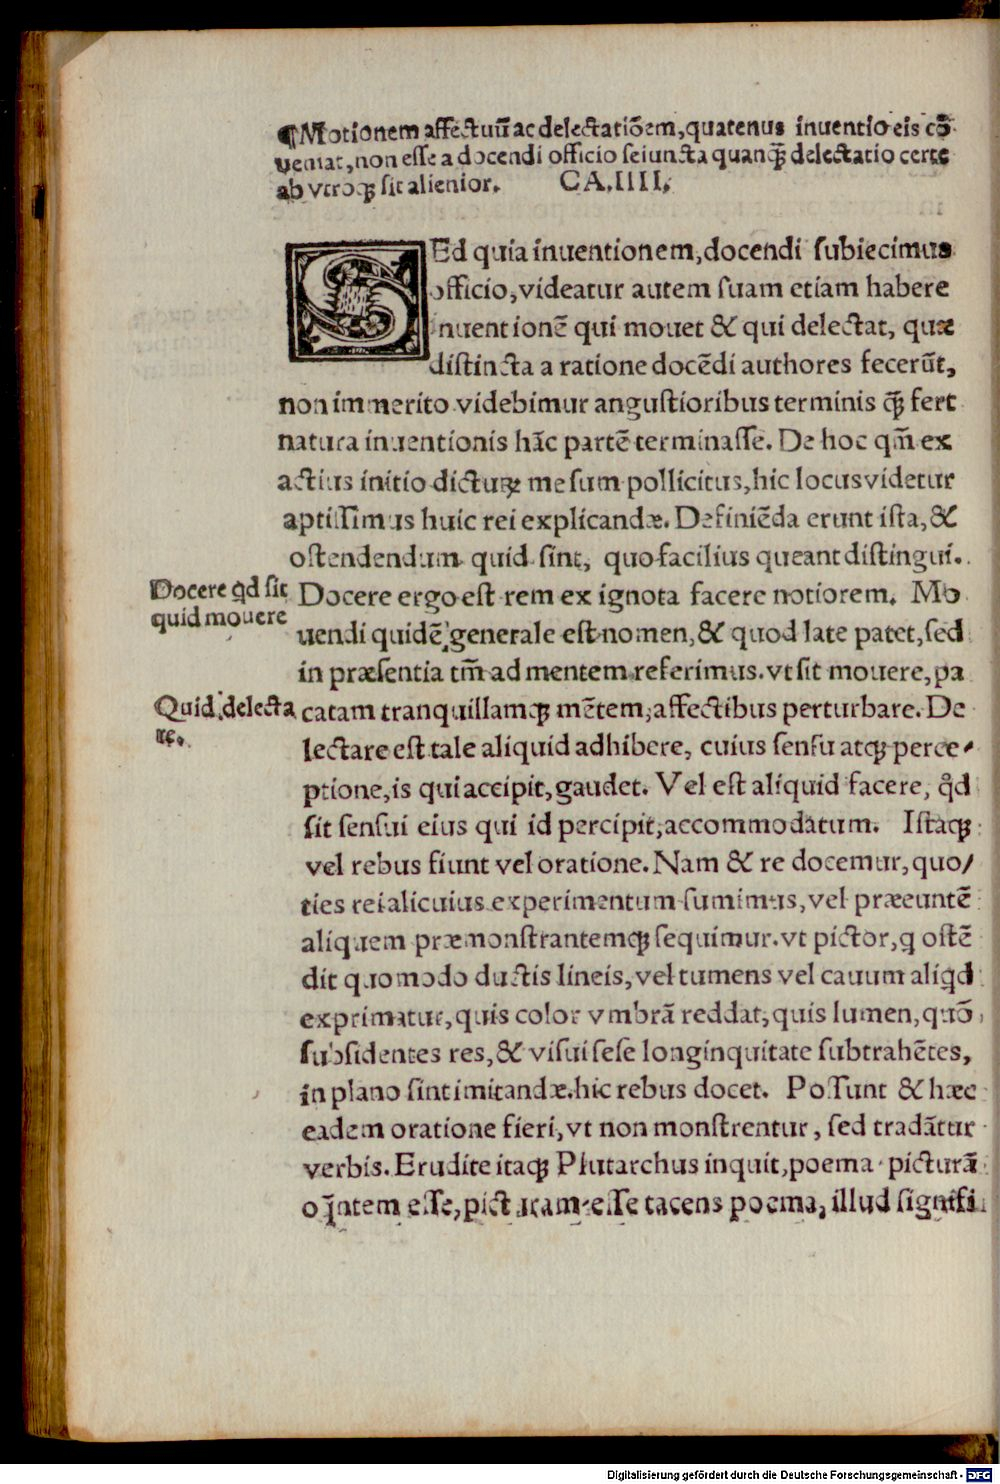 ¶Motionem affectuū ac delectatiōem, quatenus inuentio eis cō
ueniat, non esse a docendi officio seiuncta quanq̄ delectatio certe
ab vtroq; sit alienior. CA. IIII.
SEd quia inuentionem, docendi subiecimus
officio, videatur autem suam etiam habere
inuentionē qui mouet & qui delectat, quæ
distincta a ratione docēdi authores fecerūt,
non immerito videbimur angustioribus terminis q̄ fert
natura inuentionis hāc partē terminasse. De hoc qm̄ ex
actius initio dicturꝝ me sum pollicitus, hic locus videtur
aptissimus huic rei explicandæ. Definiēda erunt ista, &
ostendendum quid sint, quo facilius queant distingui.
Docere qd sit
quid mouere
Docere ergo est rem ex ignota facere notiorem. Mo
uendi quidē generale est nomen, & quod late patet, sed
in præsentia tm̄ ad mentem referimus. vt sit mouere, pa
Quid delecta
re.
catam tranquillamq; mētem, affectibus perturbare. De
lectare est tale aliquid adhibere, cuius sensu atq; perce-
ptione, is qui accipit, gaudet. Vel est aliquid facere, qd
sit sensui eius qui id percipit, accommodatum. Istaq;
vel rebus fiunt vel oratione. Nam & re docemur, quo/
ties rei alicuius experimentum sumimus, vel præeuntē
aliquem præmonstrantemq; sequimur. vt pictor, q ostē
dit quomodo ductis lineis, vel tumens vel cauum aliqd
exprimatur, quis color vmbrā reddat, quis lumen, quō
subsidentes res, & visui sese longinquitate subtrahētes,
in plano sint imitandæ. hic rebus docet. Possunt & hæc
eadem oratione fieri, vt non monstrentur, sed tradātur
verbis. Erudite itaq; Plutarchus inquit, poema picturā
loq̄ntem esse, picturam esse tacens poema, illud signifi
Digitalisierung gefördert durch die Deutsche Forschungsgemeinschaft - DFG